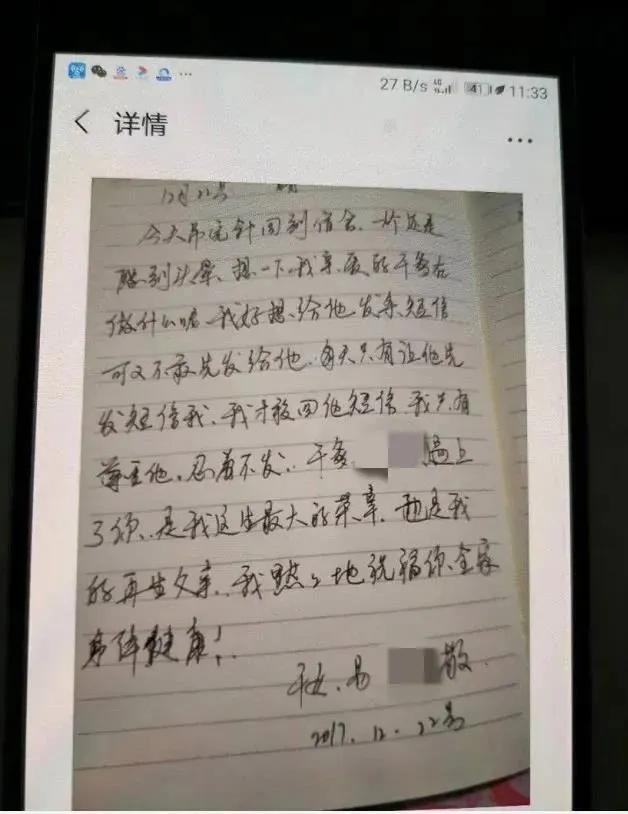 27 B/s 4G 41 11:33
详情
12月22号
今天吊完针回到宿舍、一个还是
感到头晕、想一下我亲爱的干爹在
做什么呢、我好想、给他发条短信
可又不敢先发给他、每天只有让他先
发短信我、我才敢回他短信、我只有
尊重他、忍着不发、干爹、遇上
了你、是我这生最大的荣幸、也是我
的再生父亲、我默々地祝福你、全家
身体健康！
敬
2017.12.22号